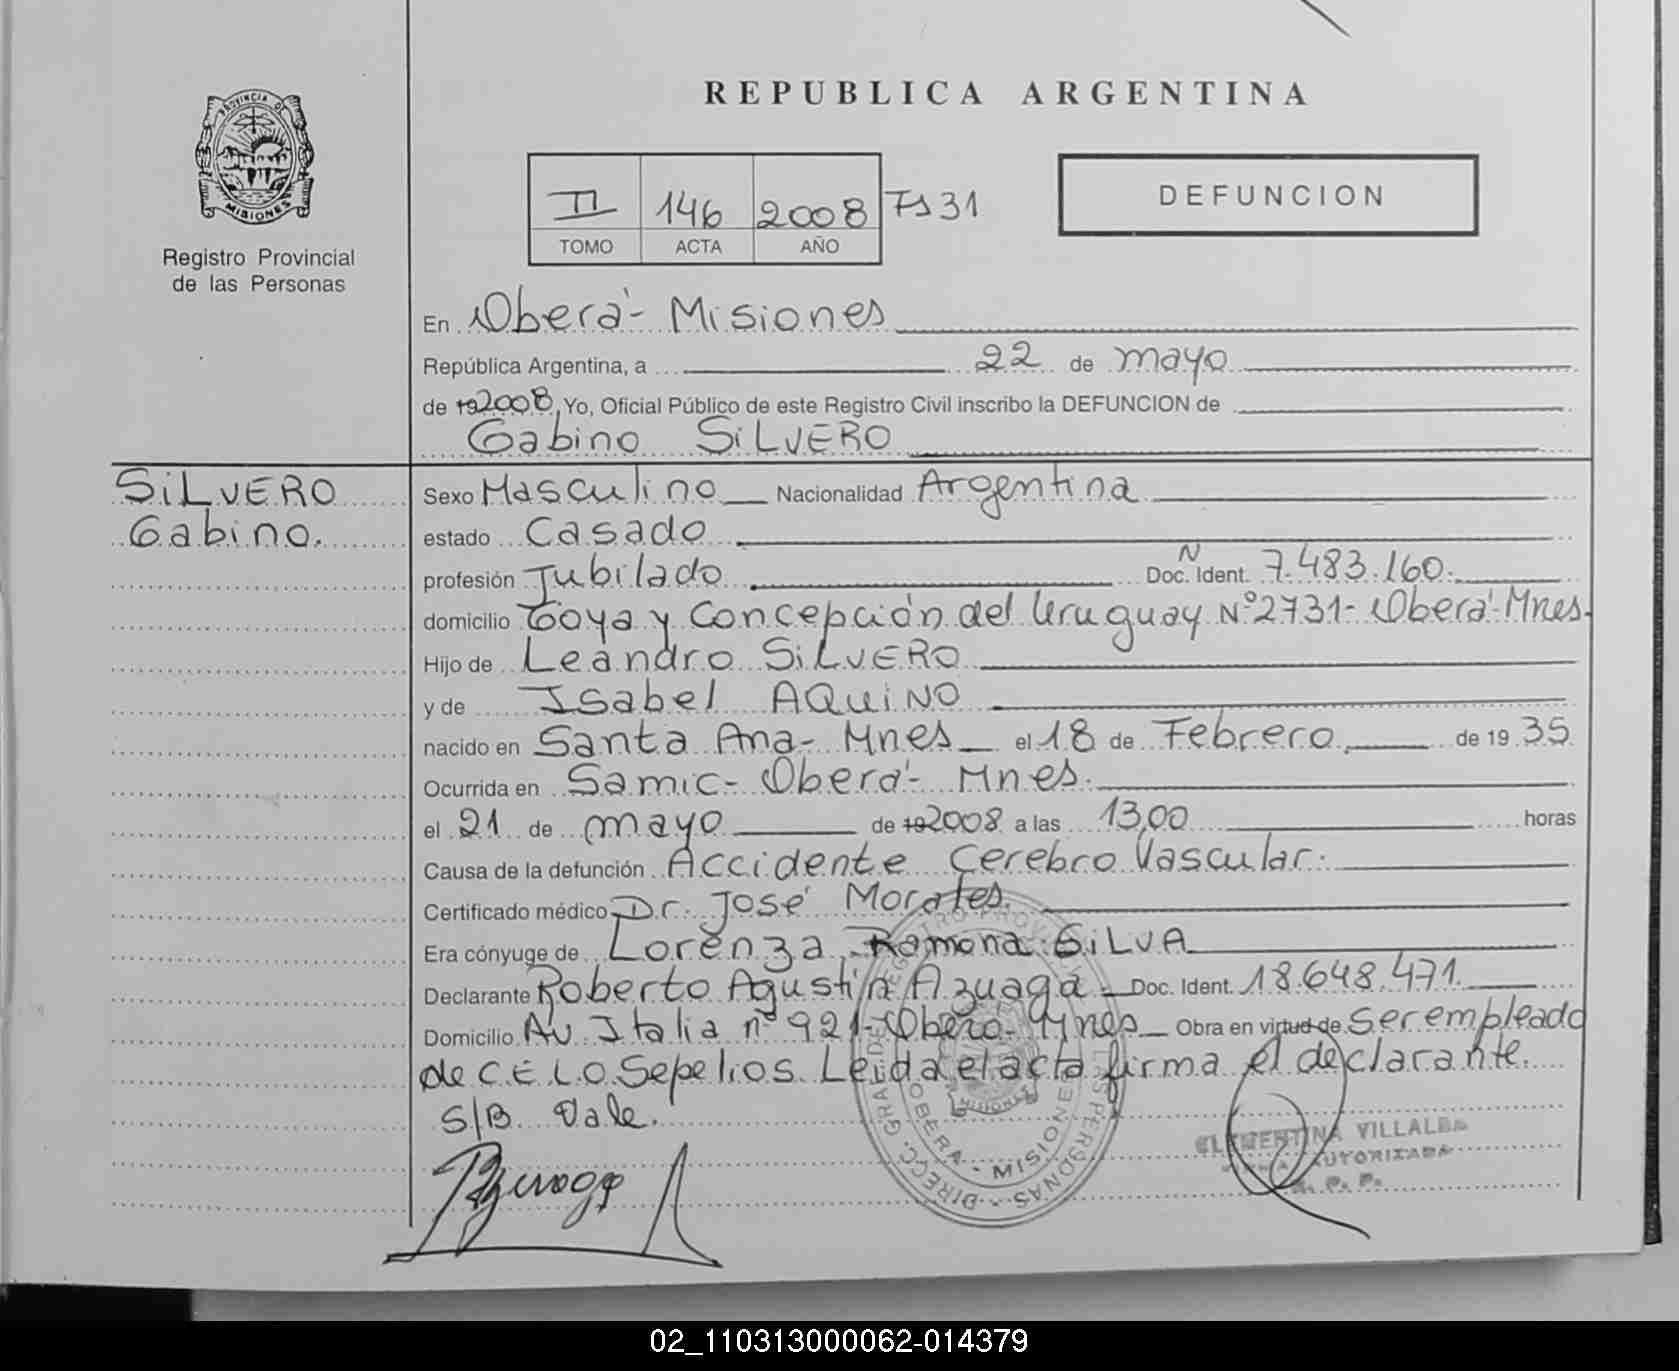 REPUBLICA ARGENTINA
PROVINCIA DE
MISIONES
Registro Provincial
de las Personas
II 146 2008 Fs 31
TOMO ACTA AÑO
DEFUNCION
En Oberá - Misiones
República Argentina, a 22 de mayo
de 19 2008, Yo, Oficial Público de este Registro Civil inscribo la DEFUNCION de
Gabino SiLVERO
SiLVERO
Gabino.
Sexo Masculino Nacionalidad Argentina
estado Casado
profesión Jubilado Doc. N Ident. 7.483.160.
domicilio Goya y Concepción del Uruguay Nº 2731 - Oberá - Mnes.
Hijo de Leandro SiLVERO
y de Isabel AQUiNO
nacido en Santa Ana - Mnes el 18 de Febrero de 19 35
Ocurrida en Samic - Oberá - Mnes.
el 21 de mayo de 19 2008 a las 13,00 horas
Causa de la defunción Accidente Cerebro Vascular.
Certificado médico Dr. José Morales.
Era cónyuge de Lorenza Ramona SiLVA
Declarante Roberto Agustín Azuaga - Doc. Ident. 18.648.471.
Domicilio Av. Italia nº 921 - Oberá - Mnes Obra en virtud de Ser empleado
de C.E.L.O. Sepelios. Leida el acta firma el declarante.
S/B Vale.
DIRECC. GRAL DE REGISTRO PROVINCIAL DE LAS PERSONAS
OBERA - MISIONES
MISIONES
CLEMENTINA VILLALBA
AUTORIZADA
R. P. P.
02_110313000062-014379